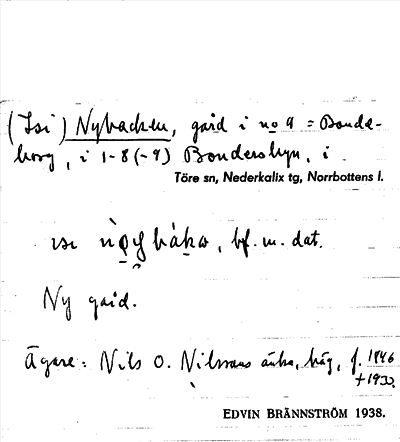 (Isi) Nybacken, gård i no 9 = Bonde-
borg, i 1-8 (-9) Bondersbyn, i
Töre sn, Nederkalix tg, Norrbottens l.
bf. m. dat.
Ny gård.
Ägare: Nils O. Nilssons änka, häg, f. 1846
+1933.
EDVIN BRÄNNSTRÖM 1938.